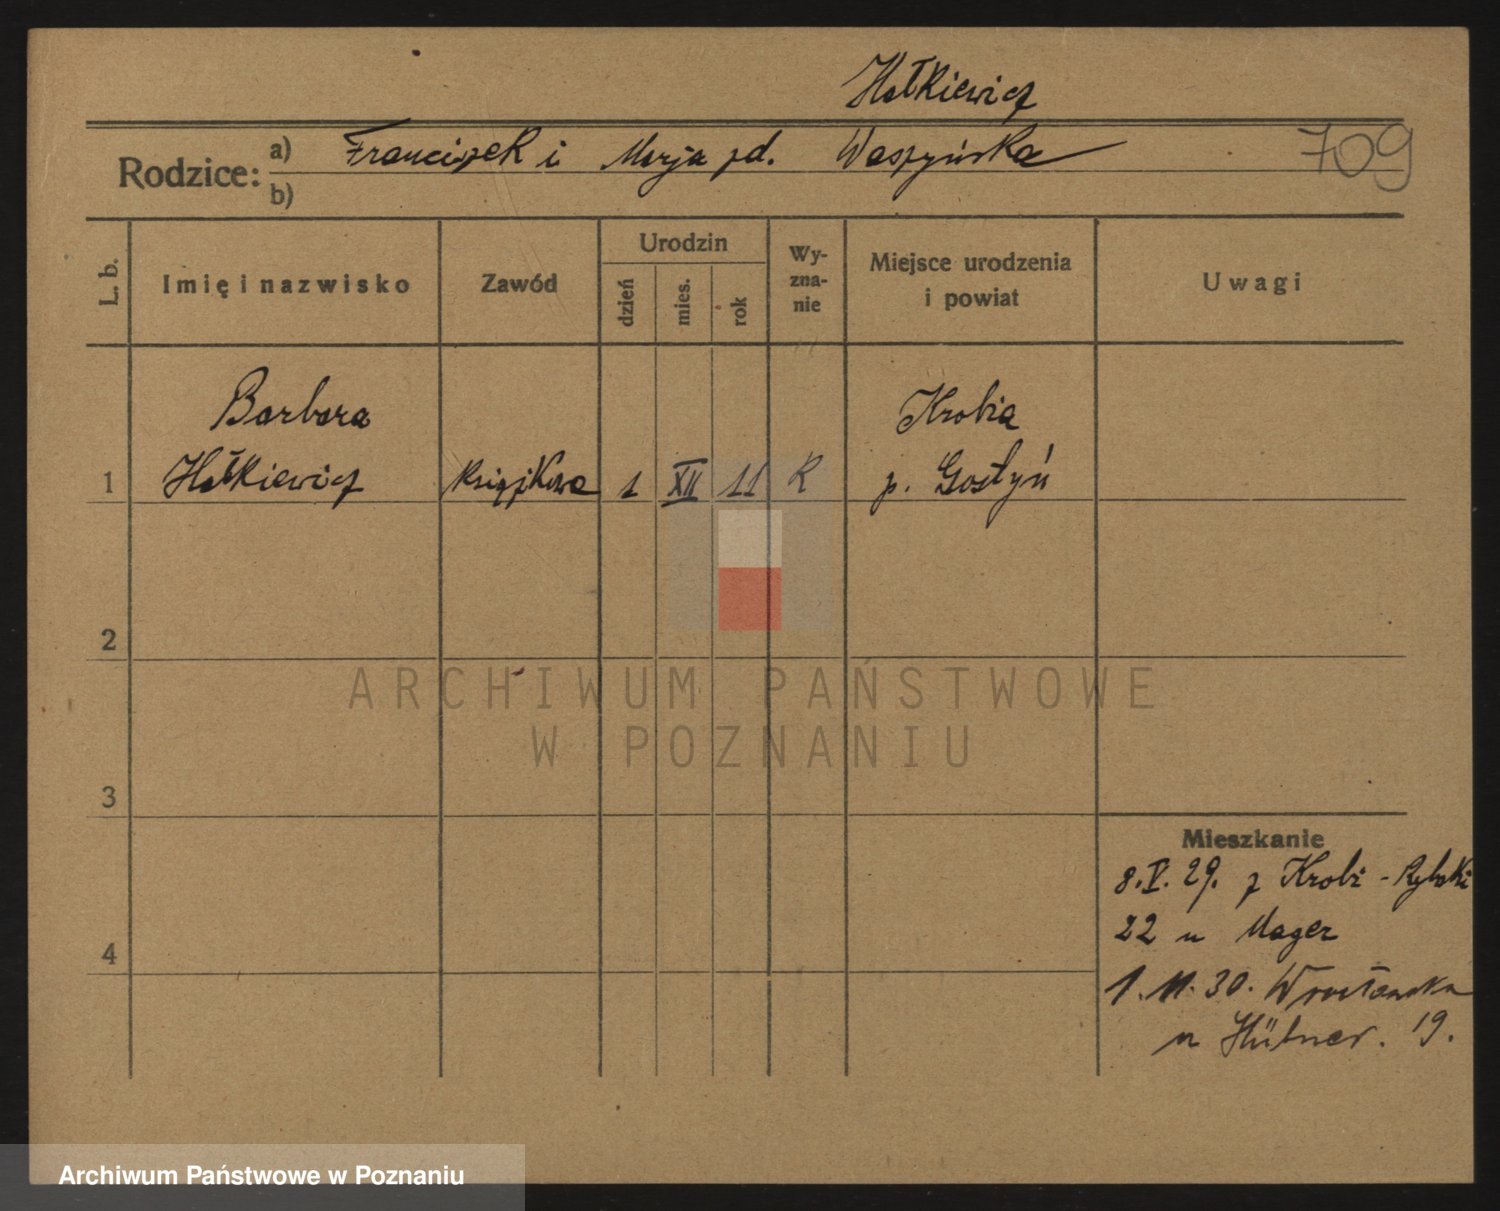 Hałkiewicz
Rodzice: a) Franciszek i Marja zd. Waszyńska 709
b)
L. b. Imię i nazwisko Zawód Urodzin dzień mies. rok Wyzna-nie Miejsce urodzenia i powiat Uwagi
Barbara Krobia
1 Hałkiewicz Książkowa 1 XII 11 R p. Gostyń
2
ARCHIWUM PAŃSTWOWE
W POZNANIU
3
Mieszkanie
8.V.29. z Krobi - Rybaki
22 u Mager
4
1.11.30. Wrocławska
u Hübner. 19.
Archiwum Państwowe w Poznaniu